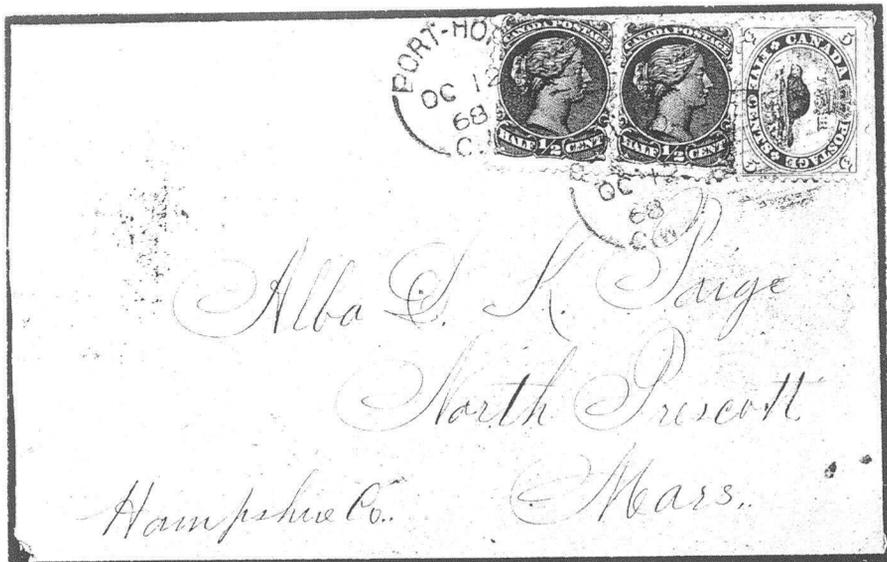 PORT-HOP
OC 12
68
C.
CANADA POSTAGE
HALF 1/2 CENT
CANADA POSTAGE
HALF 1/2 CENT
CANADA POSTAGE
FIVE CENTS
5 5 5 5
OC 12
68
C.W
Alba D. K. Paige
North Prescott
Mass.
Hampshire Co.